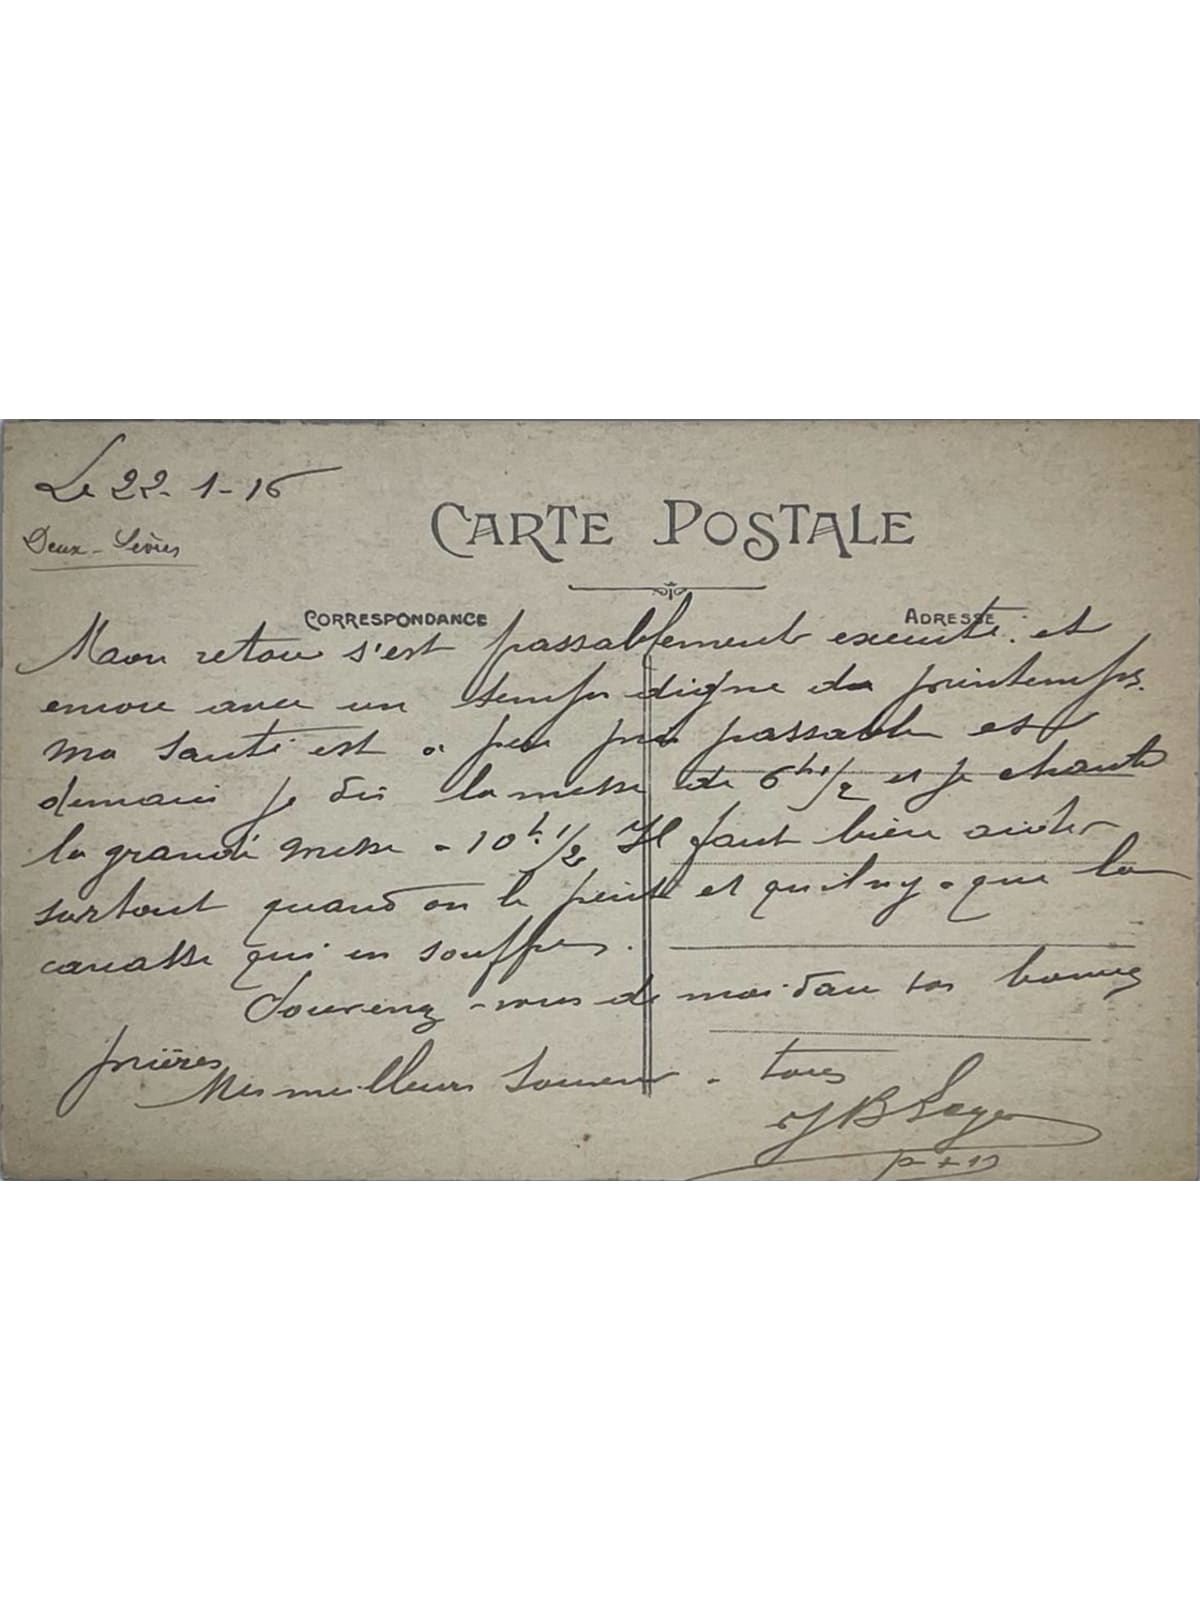 Le 22-1-16
Deux-Sèvres
CARTE POSTALE
CORRESPONDANCE
ADRESSE
Mon retour s'est passablement executé et
encore avec un temps digne du printemps.
Ma santé est a peu près passable et
demain je dis la messe de 6h 1/2 et je chante
la grande messe a 10h. 1/2 Il faut bien aider
surtout quand on le peut et qu'il n'y a que la
carcasse qui en souffre.
Souvenez-vous de moi dans vos bonnes
prières
Mes meilleurs souvenirs a tous
JB Leger